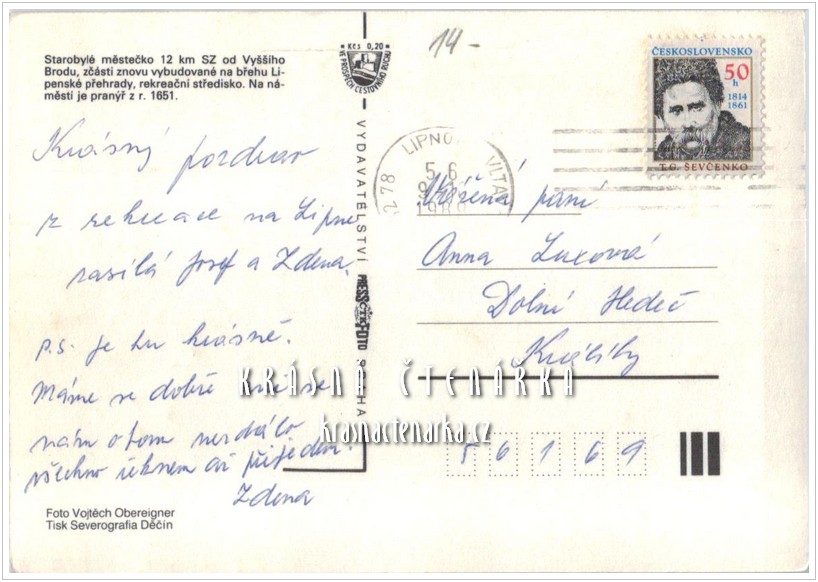 Starobylé městečko 12 km SZ od Vyššího
Brodu, zčásti znovu vybudované na břehu Li-
penské přehrady, rekreační středisko. Na ná-
městí je pranýř z r. 1651.
Krásný pozdrav
z rekreace na Lipne
zasílá Josef a Zdena.
p.s. je tu krásně.
Máme se dobře
nám o tom nezdálo
všechno řeknem až přijedem.
Zdena
Foto Vojtěch Obereigner
Tisk Severografia Děčín
Kčs 0,20
VE PROSPĚCH CESTOVNÍHO RUCHU
VYDAVATELSTVÍ PRESSFOTO PRAHA
14-
ČESKOSLOVENSKO
50
h
1814
1861
T.G. ŠEVČENKO
LIPNO VLTA
278
5.6
Vážená paní
Anna Luxová
Dolní Hedeč
Králíky
56169
KRÁSNÁ ČTENÁRKA
krasnactenarka.cz